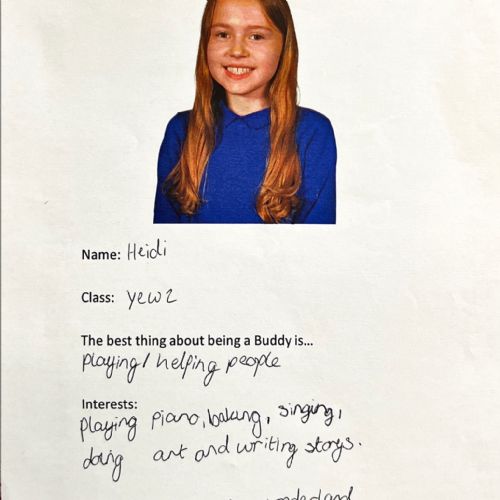 Name: Heidi
Class: yew 2
The best thing about being a Buddy is...
playing / helping people
Interests:
playing piano, baking, singing,
doing art and writing storys.